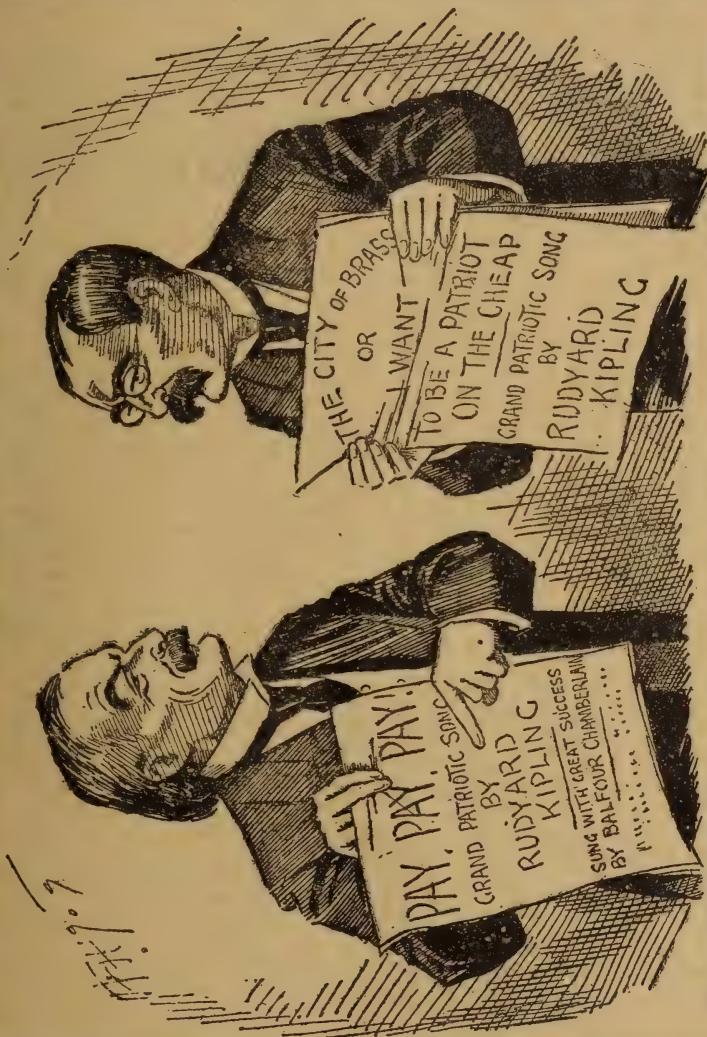 PAY, PAY, PAY!
GRAND PATRIOTIC SONG
BY
RUDYARD
KIPLING
SUNG WITH GREAT SUCCESS
BY BALFOUR CHAMBERLAIN
THE CITY OF BRASS
OR
I WANT
TO BE A PATRIOT
ON THE CHEAP
GRAND PATRIOTIC SONG
BY
RUDYARD
KIPLING